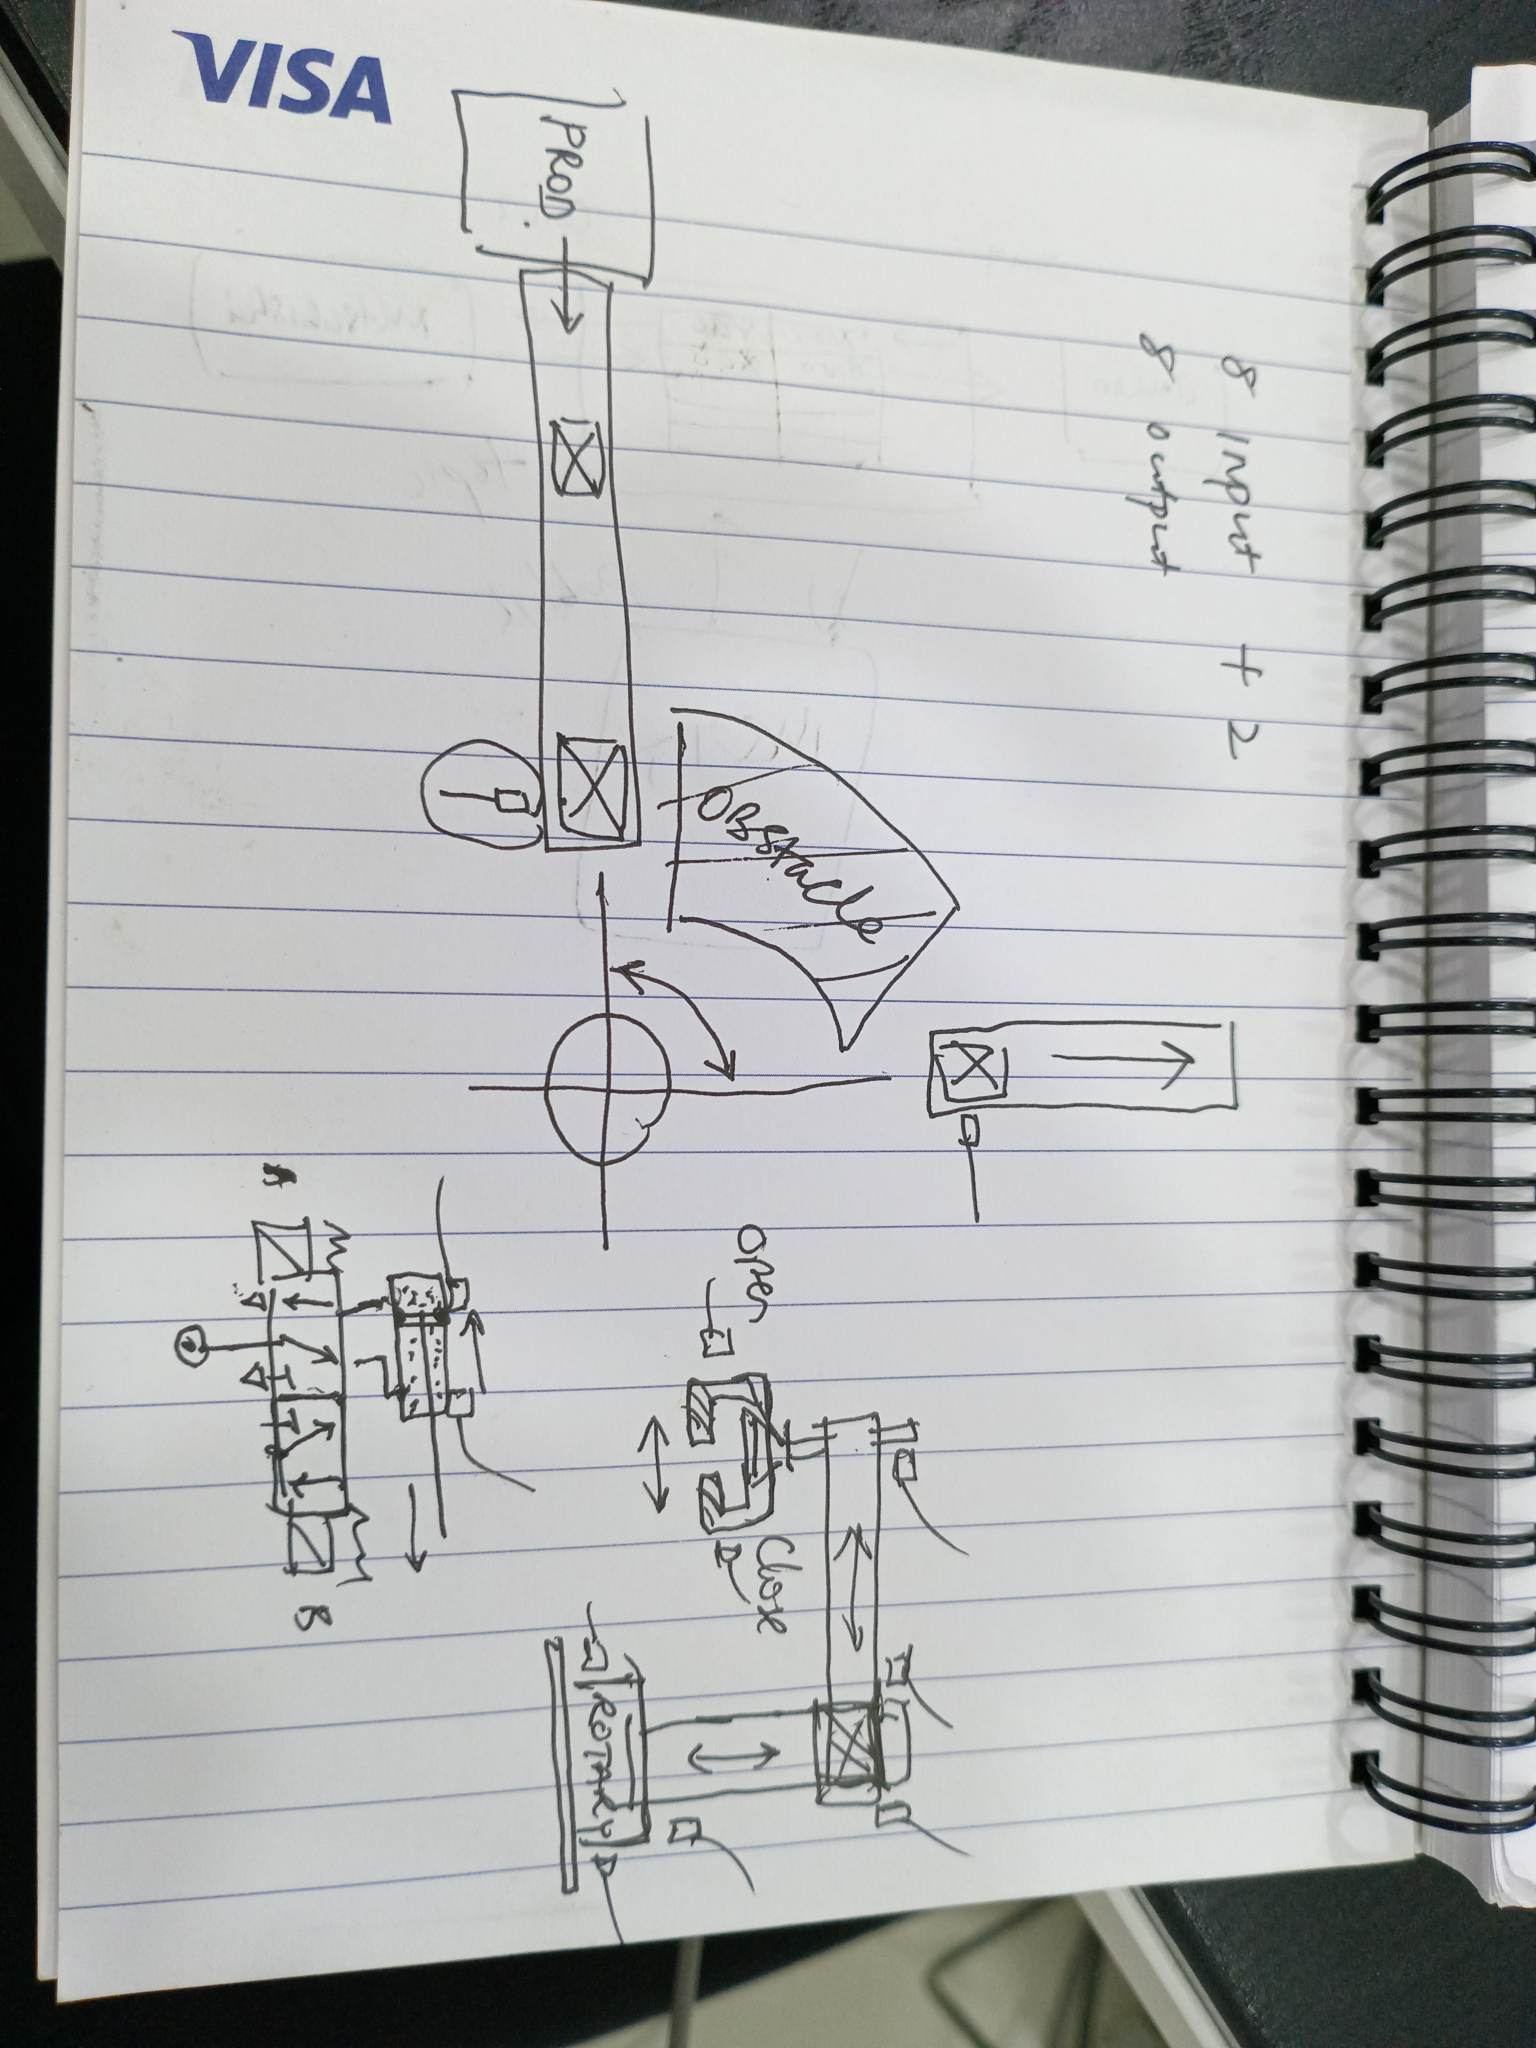 VISA
8 Input + 2
8 output
PROD.
Obstacle
Open
Close
ROTARY
A
B